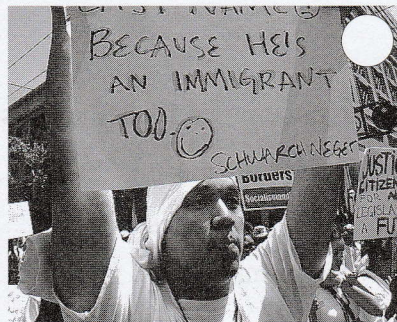 LAST NAME
BECAUSE HE'S
AN IMMIGRANT
TOO
SCHWARCHNEGER
Borders
Socialism
JUSTI
CITIZEN
FOR A
LEGISLA
A FU